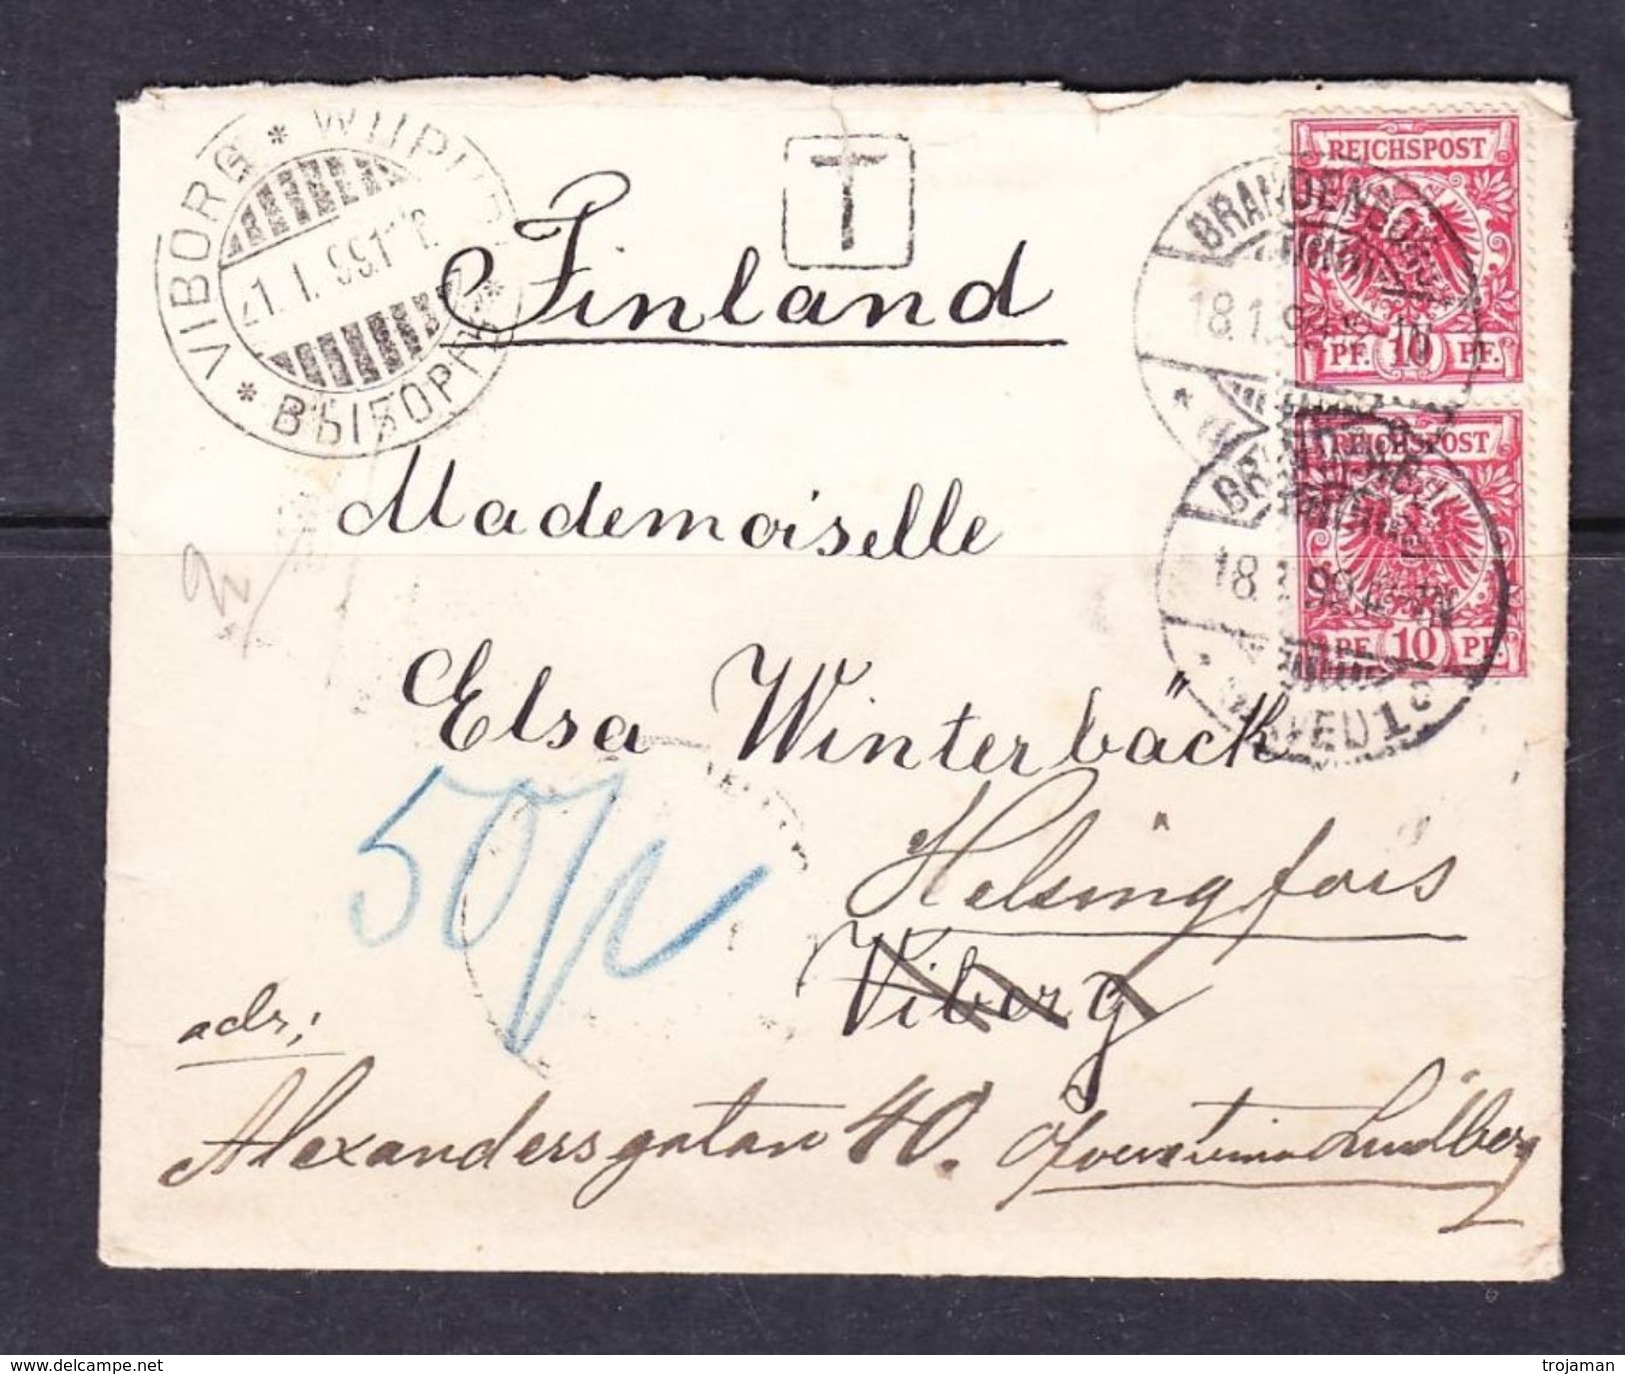 VIBORG * WIIPURI * ВЫБОРГЪ *
21.I.99
T
REICHSPOST
PF. 10 PF.
REICHSPOST
PF. 10 PF.
BRANDENBURG
18.1.99
18.1.99
Finland
Mademoiselle
Elsa Winterbäck
Helsingfors
Viborg
50
adr;
Alexandersgatan 40. Öfverstinnan Lundberg
trojaman